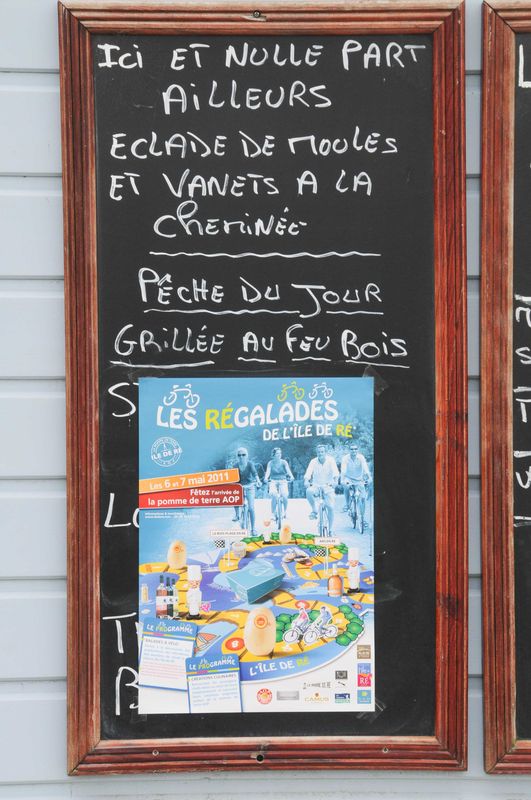 Ici ET NULLE PART
AILLEURS
ECLADE DE MOULES
ET VANETS A LA
CHEMINÉE
PÊCHE DU JOUR
GRILLÉE AU FEU BOIS
ST
LES RÉGALADES
DE L'ÎLE DE RÉ
ILE DE RÉ
Les 6 et 7 mai 2011
Fêtez l'arrivée de
la pomme de terre AOP
LE BOIS-PLAGE-EN-RÉ
LE PROGRAMME
BALADES À VÉLO
LE PROGRAMME
CRÉATIONS CULINAIRES
L'ÎLE DE RÉ
CAMUS